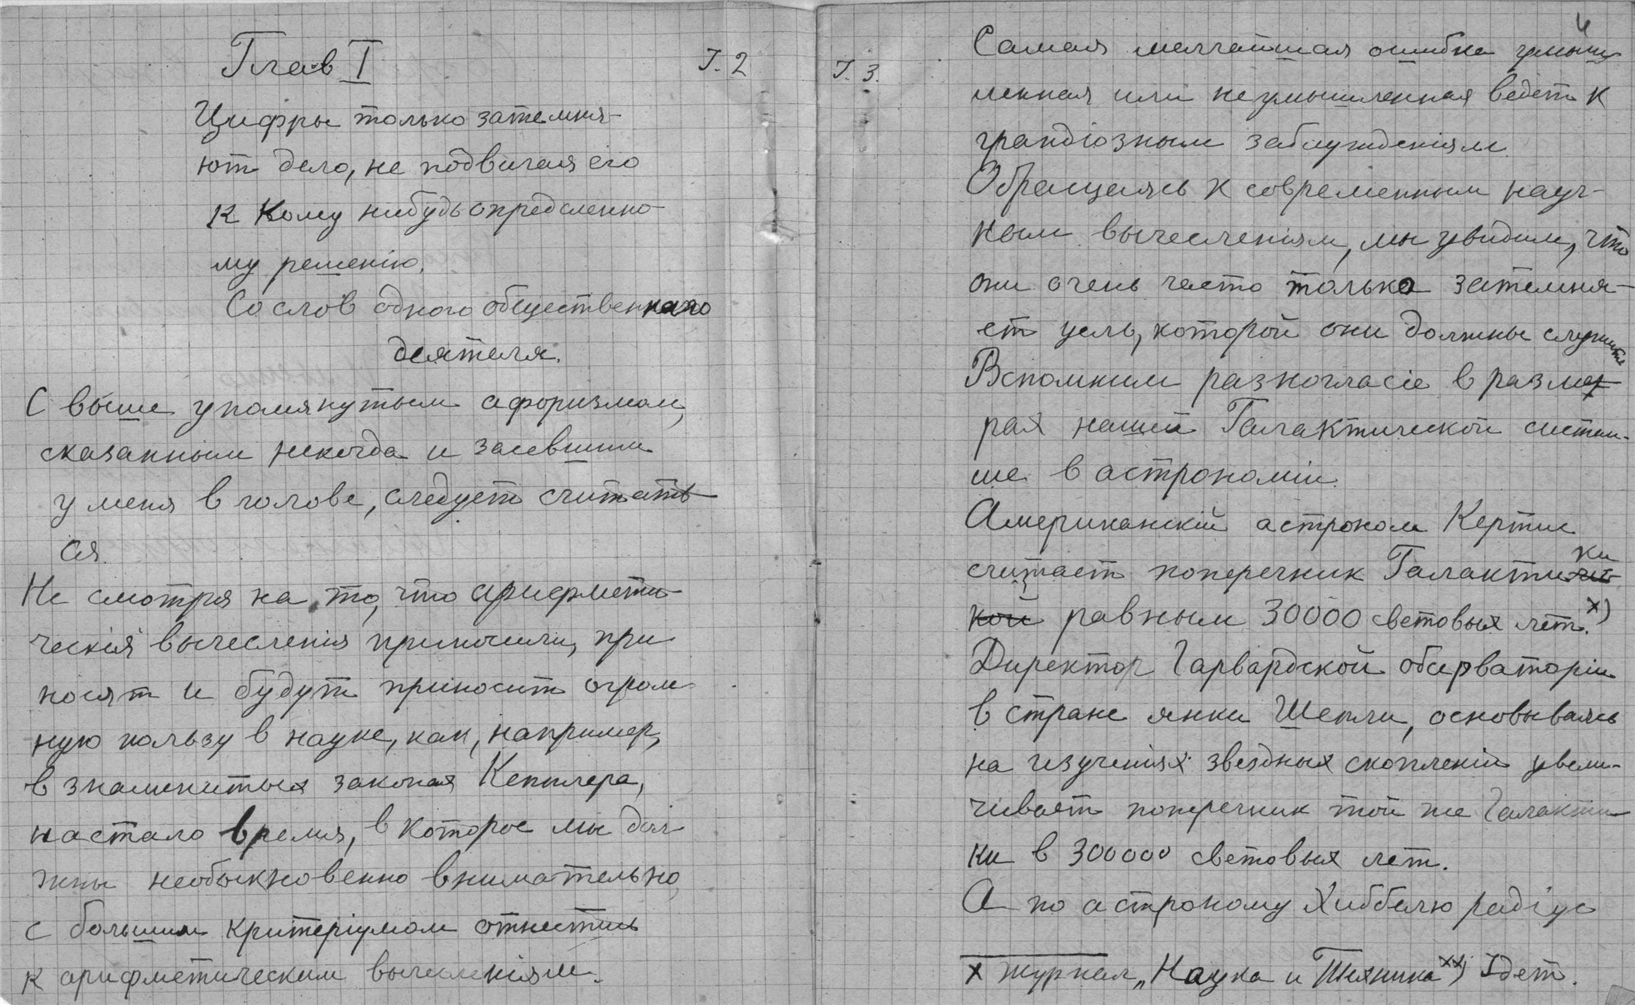 Глав I
I. 2
Цифры только затемня-
ют дело, не подвигая его
к кому нибудь определенно-
му решенію.
Со слов одного общественнаго
деятеля.
С выше упомянутым афоризмом,
сказанным некогда и засевшим
у меня в голове, следует считать
ся.
Не смотря на то, что арифмети-
ческія вычесленія приносили, при
носят и будут приносит огром
ную пользу в науке, как, например,
в знаменитых законах Кеплера,
настало время, в которое мы дол
жны необыкновенно внимательно
с большим критеріумом отнестись
к арифметическим вычесленіям.
I. 3.
Самая мельчайшая ошибка умыш
ленная или неумышленная ведет к
грандіозным заблужденіям
Обращаясь к современным науч-
ным вычесленіям, мы увидим, что
они очень часто только затемня-
ет цель, которой они должны служить
Вспомним разногласіе в разме
рах нашей Галактической систе-
ме в астрономіи.
Американскій астроном Кертис
считает поперечник Галакти
ки
кой равным 30000 световых лет. х)
Директор Гарвардской обсерваторіи
в стране янки Шепли, основываясь
на изученіях звездных скопленій увели-
чивает поперечник той же Галакти
ки в 300000 световых лет.
А по астроному Хиббелю радіус
х Журнал „Наука и Техника хх) Idem.